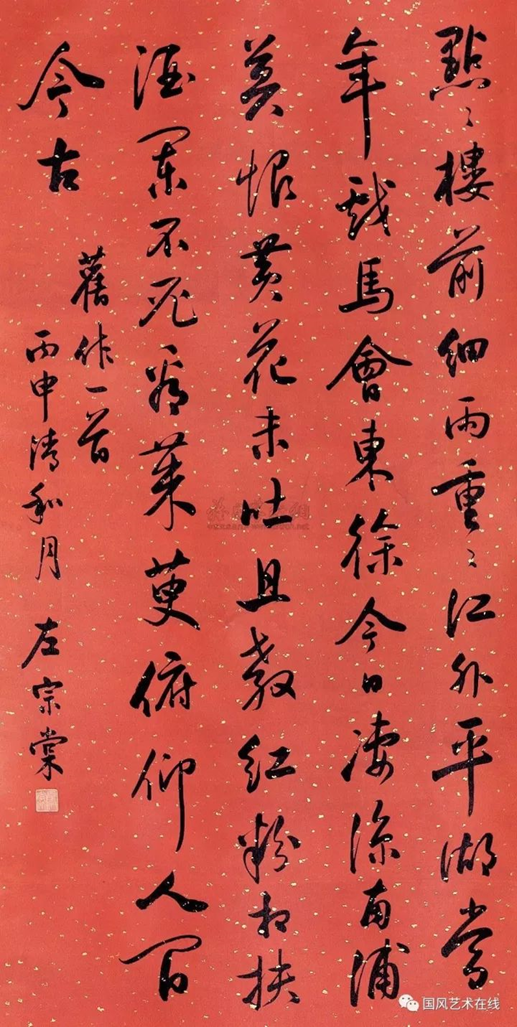 點〻樓前細雨重〻江外平湖當
年戲馬會東徐今日凄涼南浦
莫恨黃花未吐且教紅粉相扶
酒闌不看茱萸俯仰人間
今古
舊作一首
丙申清和月 左宗棠
国风艺术在线